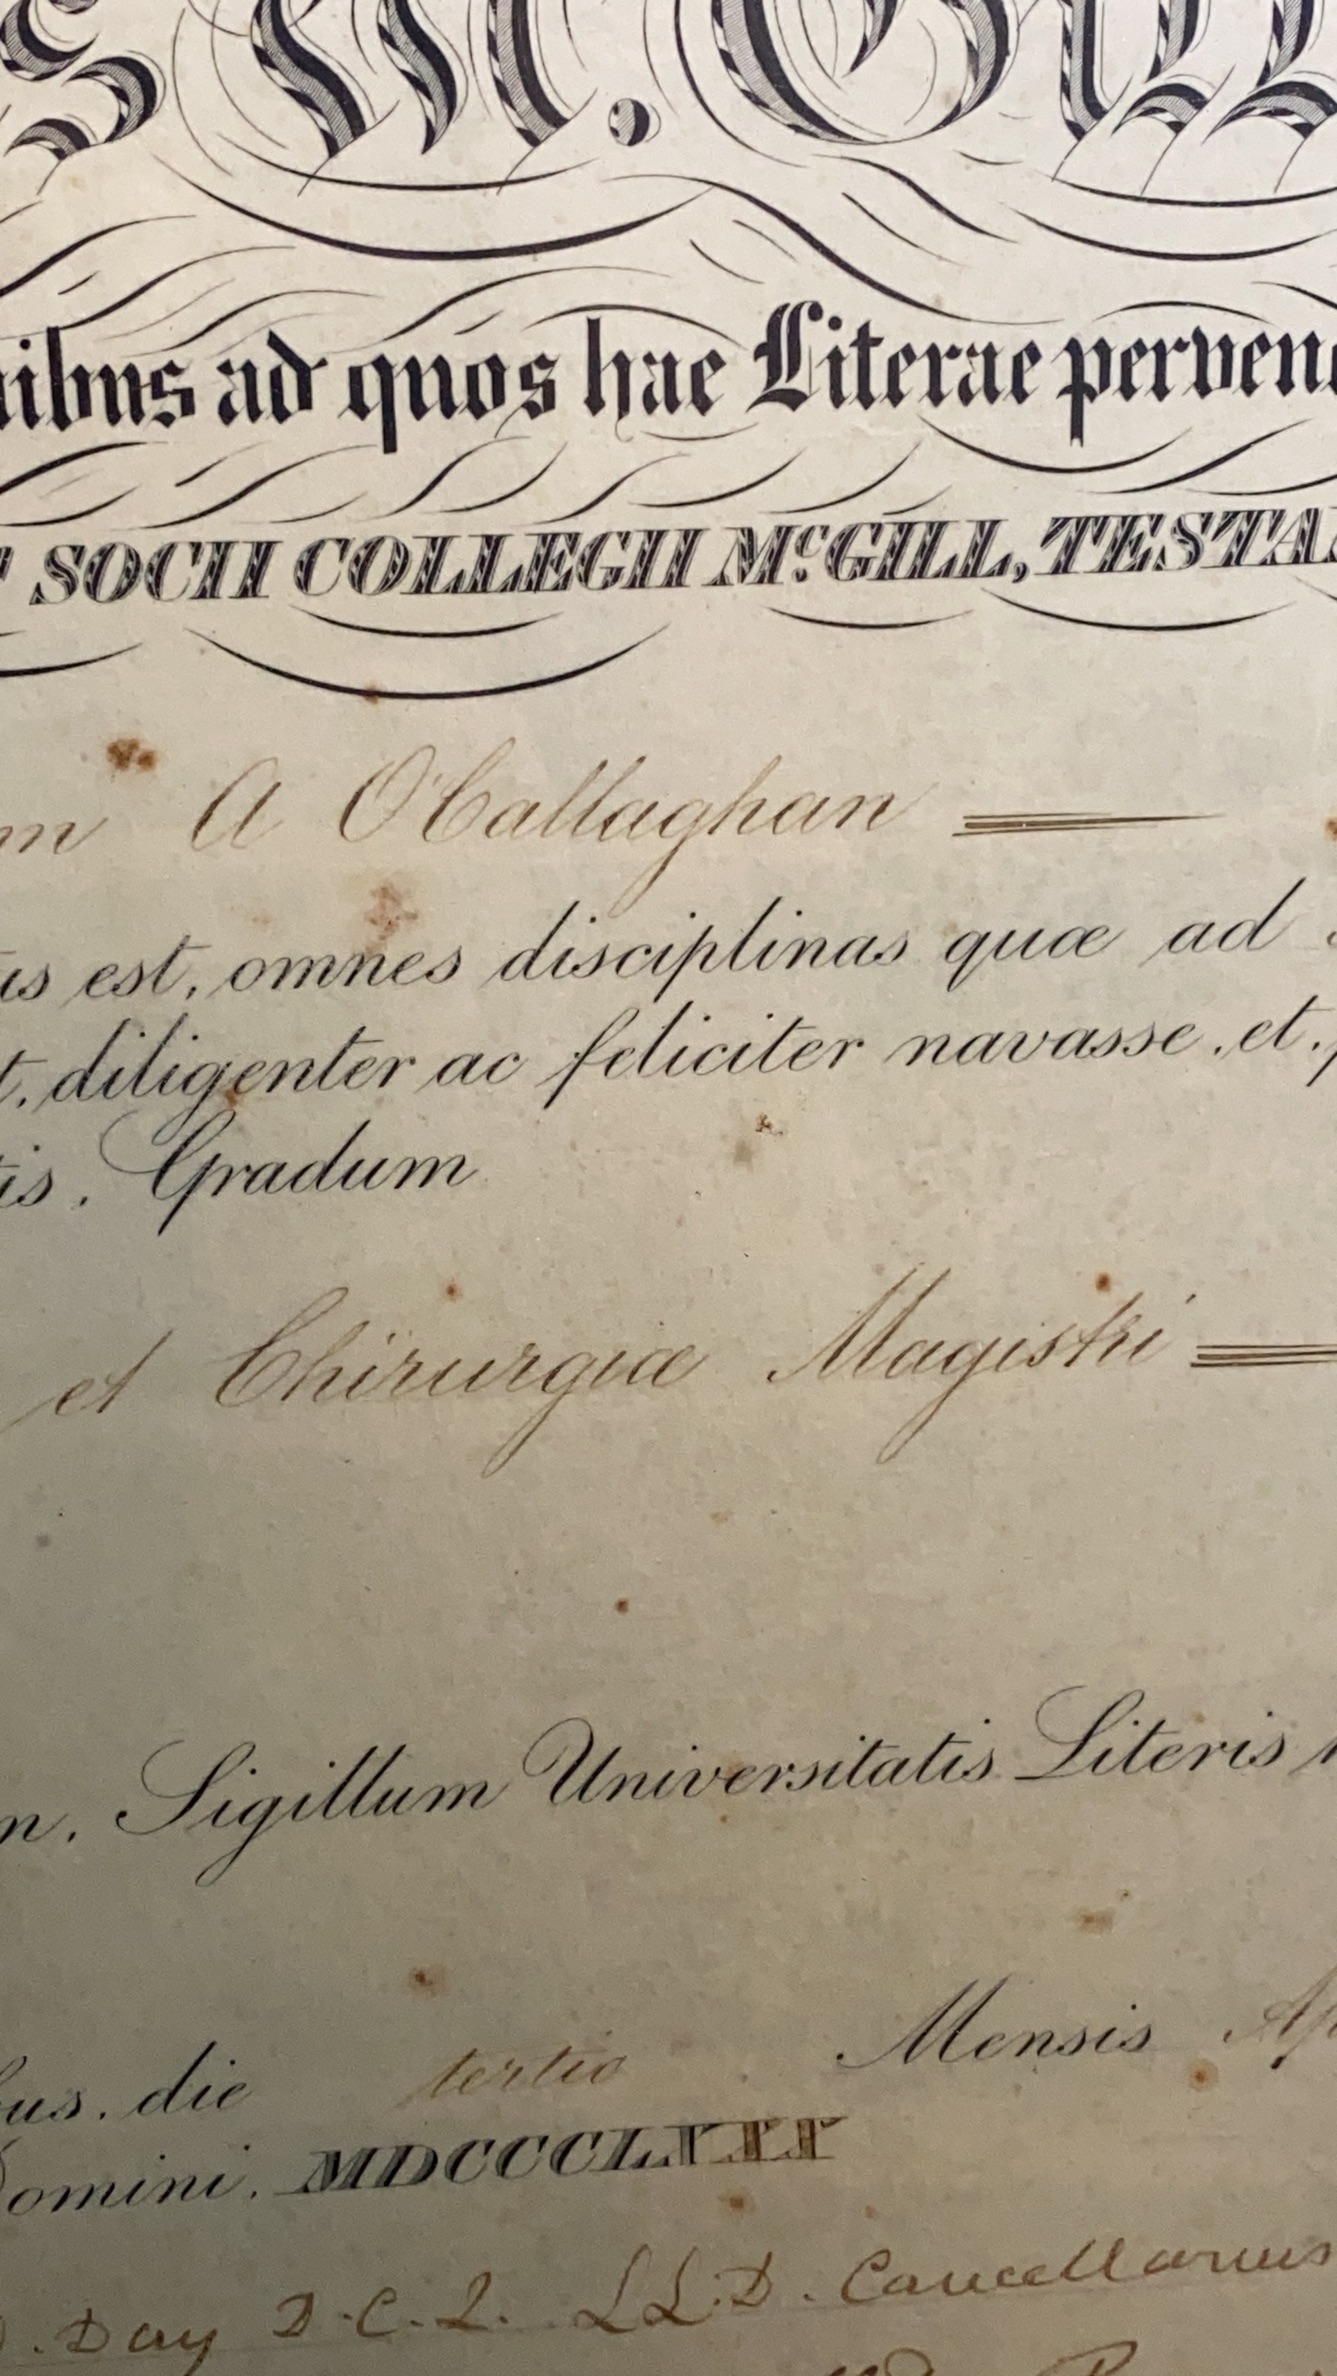 S M. Gill
ibus ad quos hae Literae perven
SOCII COLLEGII Mc.GILL, TESTA
m A O'Callaghan
us est, omnes disciplinas quæ ad
t, diligenter ac feliciter navasse, et,
tis, Gradum
et Chirurgiæ Magistri
n, Sigillum Universitatis Literis
bus, die tertio Mensis Ap
Domini, MDCCCLXXX
D. Day D.C.L. LL.D. Cancellarius